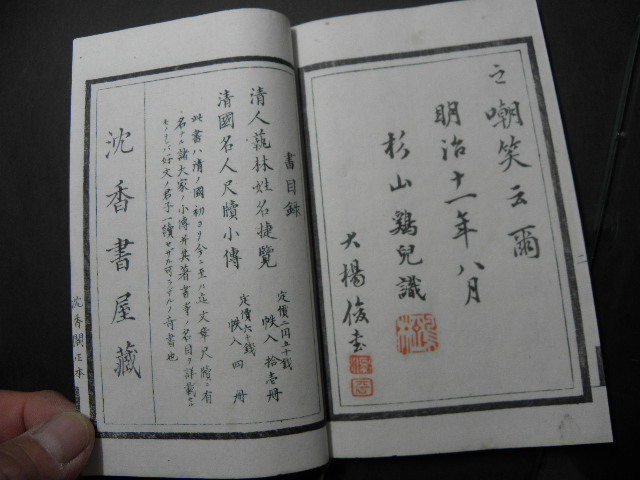 之嘲笑云爾
明治十一年八月
杉山鷄兒識
大楊俊書
書目録
清人藝林姓名捷覧
定價二円五十銭
帙入 拾壱冊
清國名人尺牘小傳
定價六十銭
帙入 四冊
此書ハ清ノ國初ヨリ今ニ至ル迄文章尺牘ニ有
名ナル諸大家ノ小傳并其著書等ノ名目ヲ詳載
好文ノ君子一讀セザル可ラザルノ奇書也
沈香書屋藏
沈香閣